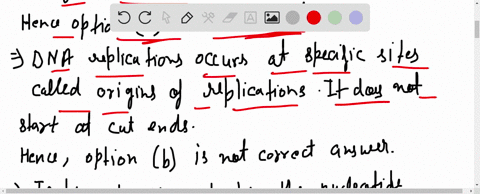 Hence option
⇒ DNA replications occurs at specific sites
called origins of replications. It does not
start at cut ends.
Hence, option (b) is not correct answer.